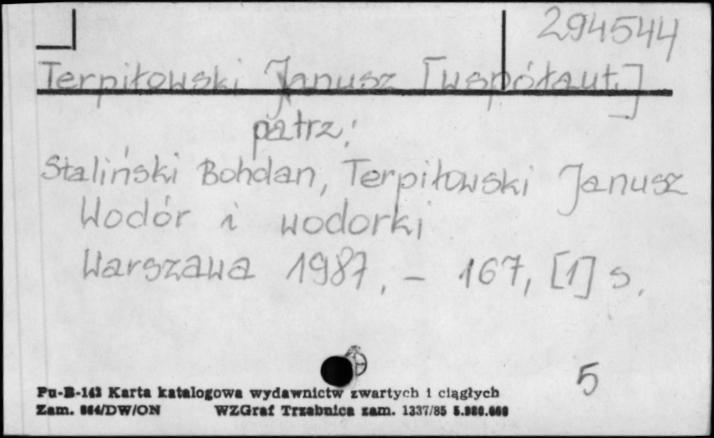 294544
Terpiłowski Janusz [współaut.]
patrz:
Staliński Bohdan, Terpiłowski Janusz
Wodór i wodorki
Warszawa 1987. - 167, [1] s.
5
Pu-B-143 Karta katalogowa wydawnictw zwartych i ciągłych
Zam. 884/DW/ON WZGraf Trzebnica zam. 1337/85